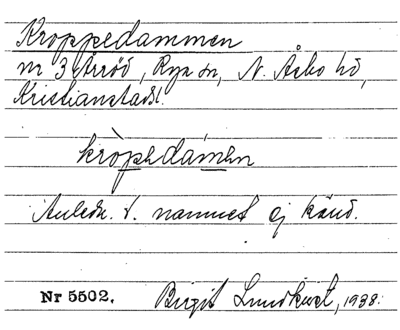 Kroppedammen
nr 3 Årröd, Rya sn, N. Åsbo hd,
Kristianstads l.
kròpedámen
Anledn. t. namnet ej känd.
Nr 5502. Birgit Lundkvist, 1938.